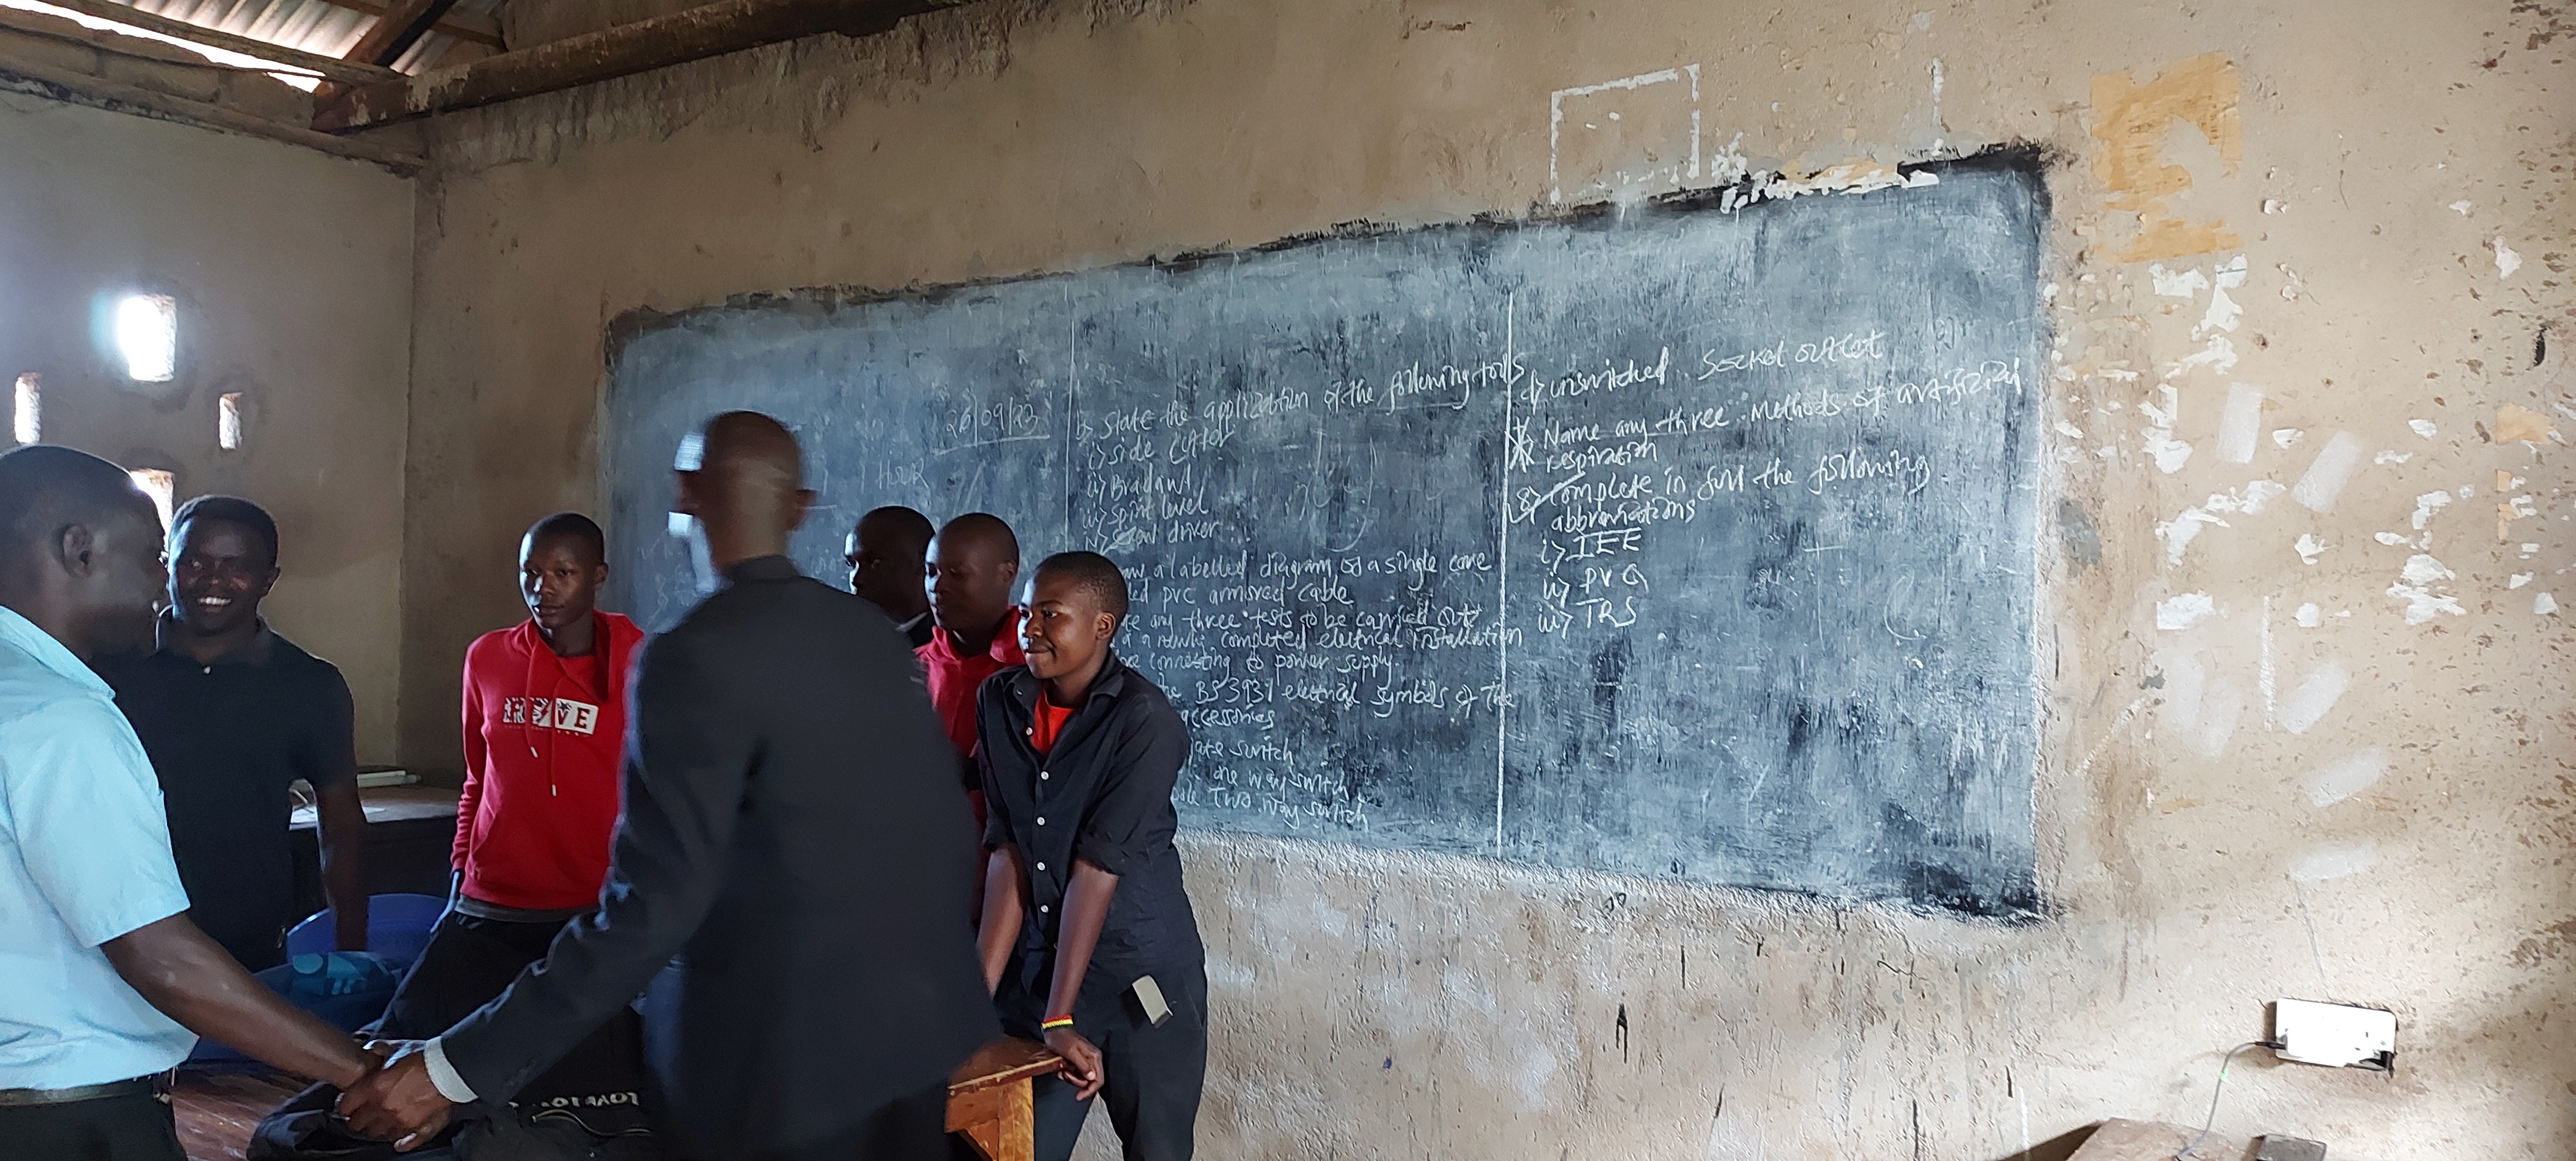 26/09/23
HOUR
b> State the application of the following tools
i> side cutter
ii> Bradawl
iii> spirit level
iv> screw driver
a labelled diagram of a single core
pvc armored cable
any three tests to be carried out
a newly completed electrical installation
connecting to power supply.
BS 3931 electrical symbols of the
accessories
switch
one way switch
Two way switch
unswitched Socket outlet
Name any three Methods of artificial
respiration
8> Complete in full the following
abbreviations
i> IEE
ii> PVC
iii> TRS
FIVE